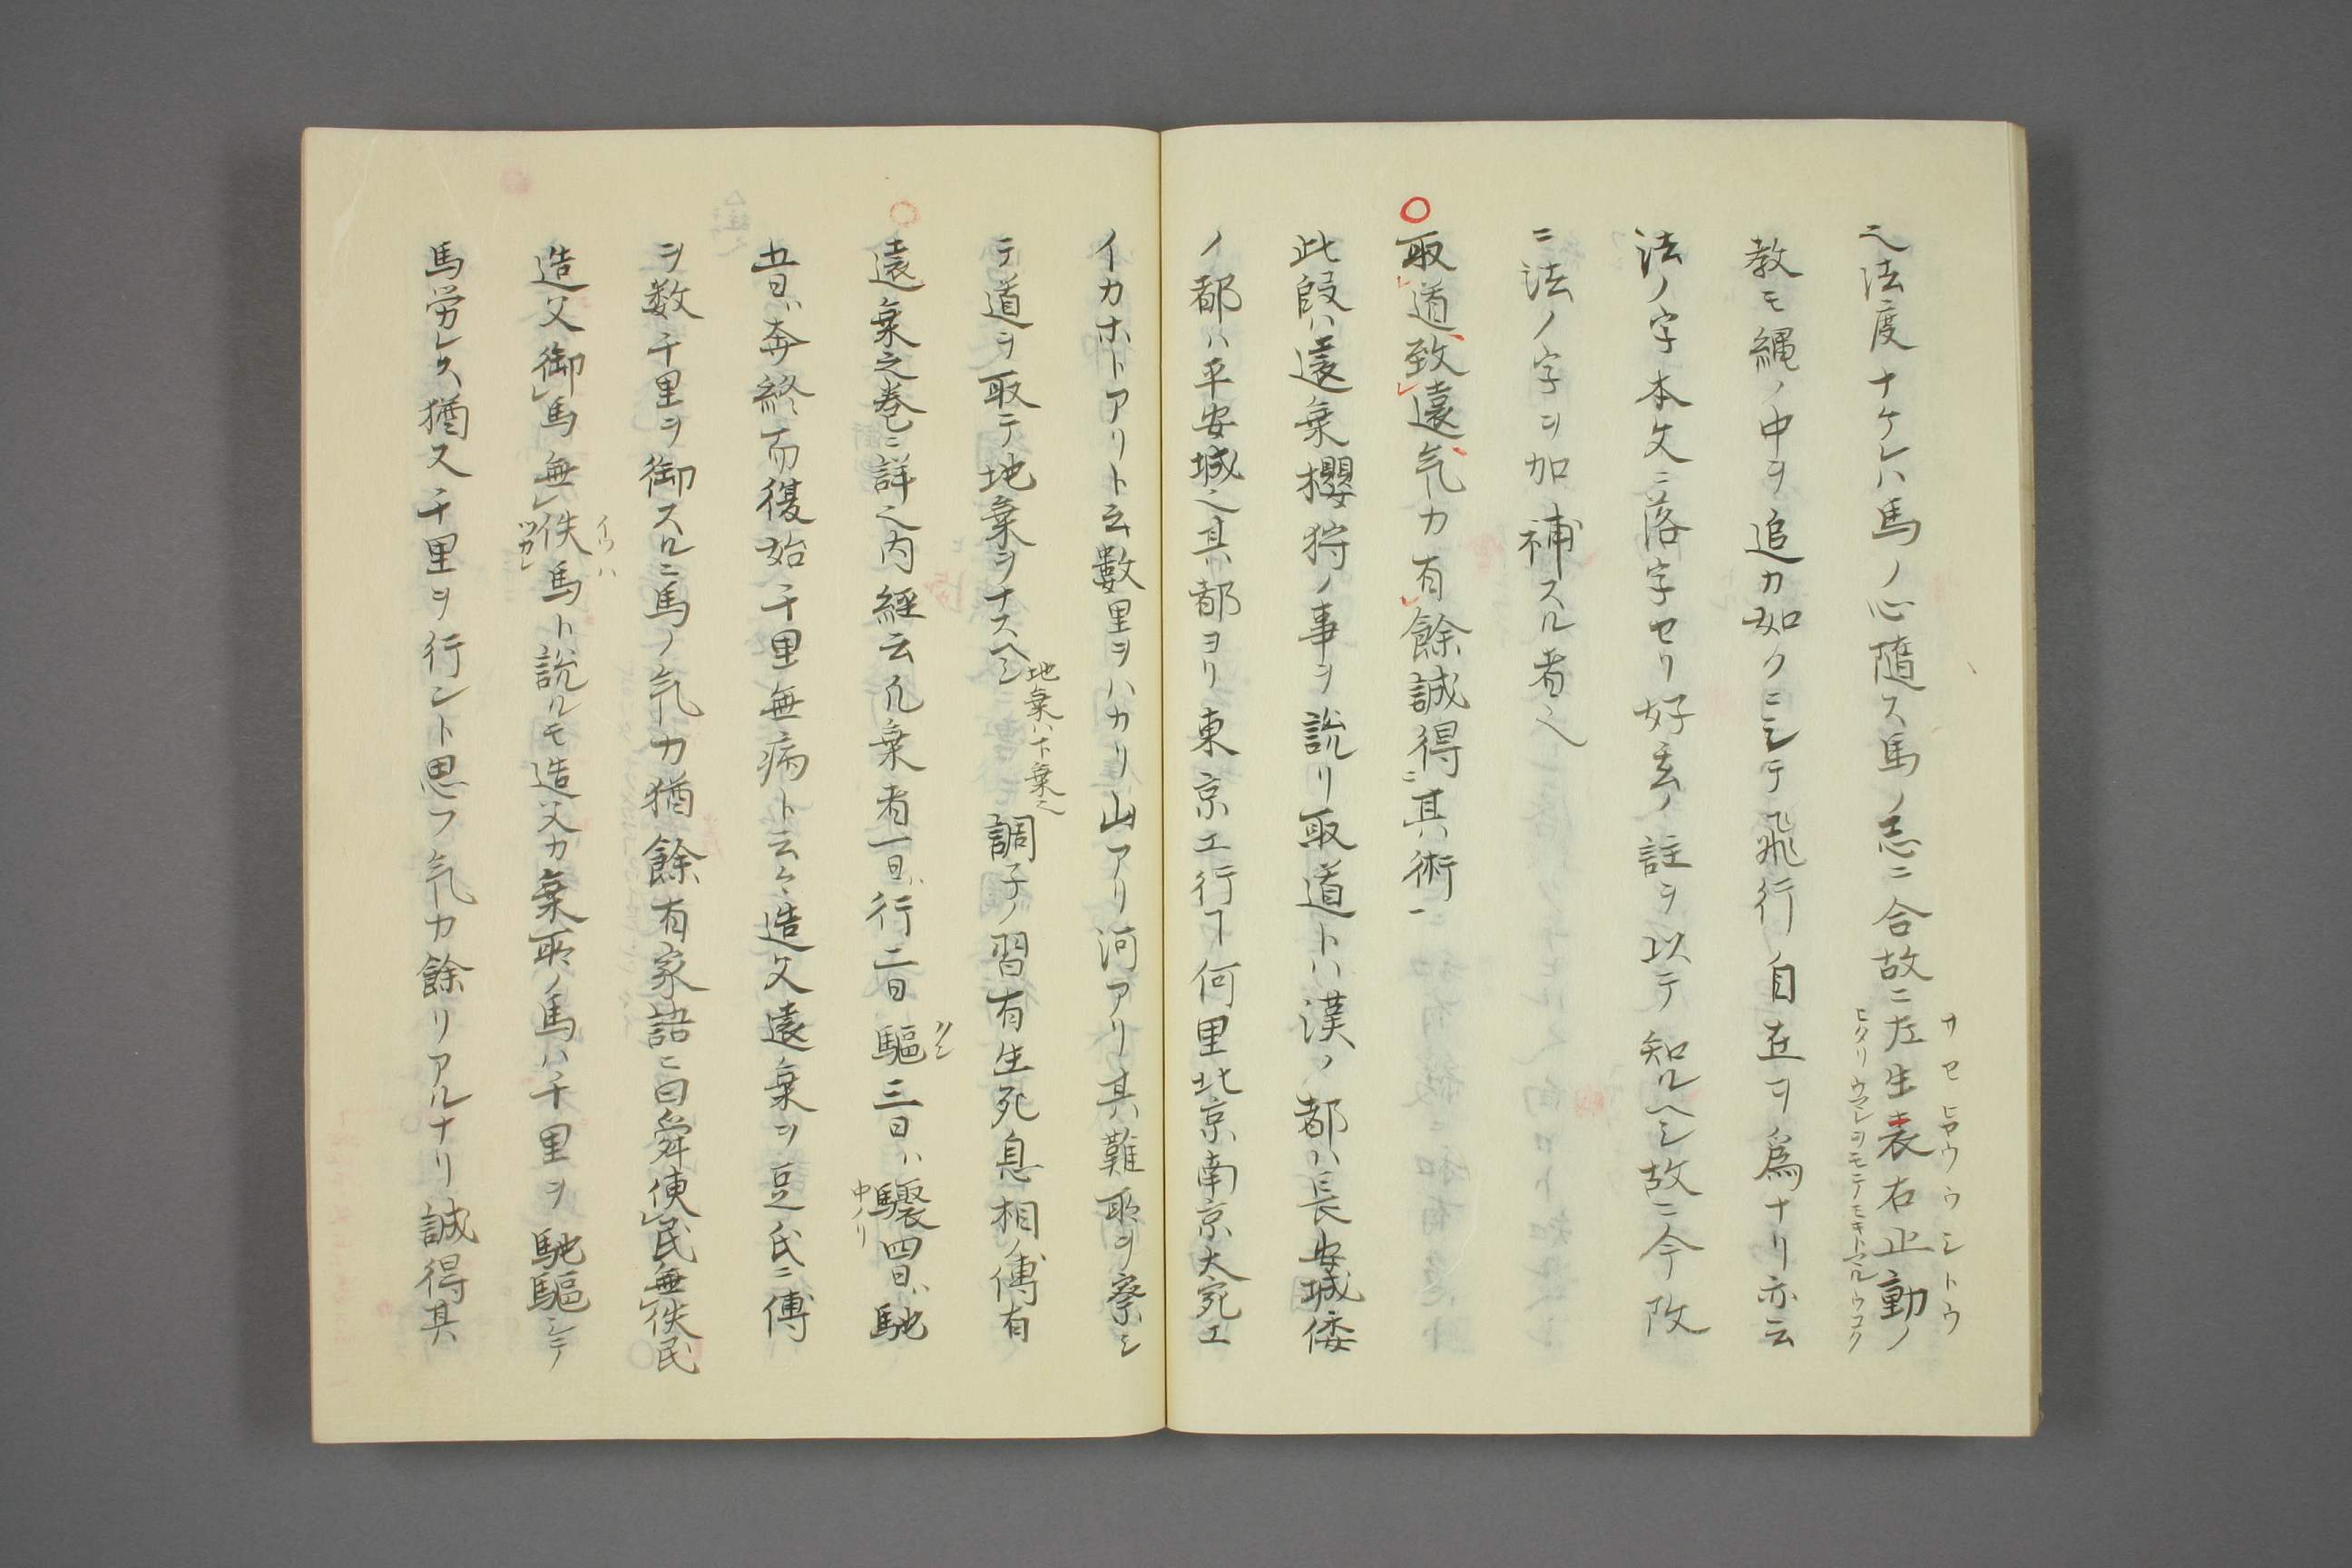 ヘ法度ナケレハ馬ノ心隨ス馬ノ志ニ合故ニ左生表右止動ノ
サセヒヤウウシトウ
ヒタリウマレヲモテモキトマルウコク
教モ縄ノ中ヲ追カ如クニシテ飛行自在ヲ為ナリ亦云
法ノ字本文ニ落字セリ好玄ノ註ヲ以テ知ルヘシ故ニ今改
ニ法ノ字ヲ加補スル者ヘ
〇取道致遠気力有餘誠得ニ其術一
此段ハ遠乗櫻狩ノ事ヲ説リ取道トハ漢ノ都ハ長安城倭
ノ都ハ平安城ヘ其都ヨリ東京エ行下何里北京南京大宛エ
イカホトアリト云數里ヲハカリ山アリ河アリ其難取ヲ察シ
テ道ヲ取テ地乗ヲナスヘシ地乗ハ下乗ヘ調子ノ習有生死息相ノ傳有
〇遠乗之巻ニ詳ヘ内經云凢乗者一日ハ行二日駆三日ハ驟四日ハ馳
クシ
中ノリ
五日ハ奔終而復始千里無病ト云々造父遠乗ヲ豆氏ニ傳
ヲ数千里ヲ御スルニ馬ノ気力猶餘有家語ニ曰舜使民無佚民
造父御馬無佚馬ト説ルモ造父カ乗取ノ馬ハ千里ヲ馳驅シテ
イウハ
ツカレ
馬労レス猶又千里ヲ行ント思フ気力餘リアルナリ誠得其